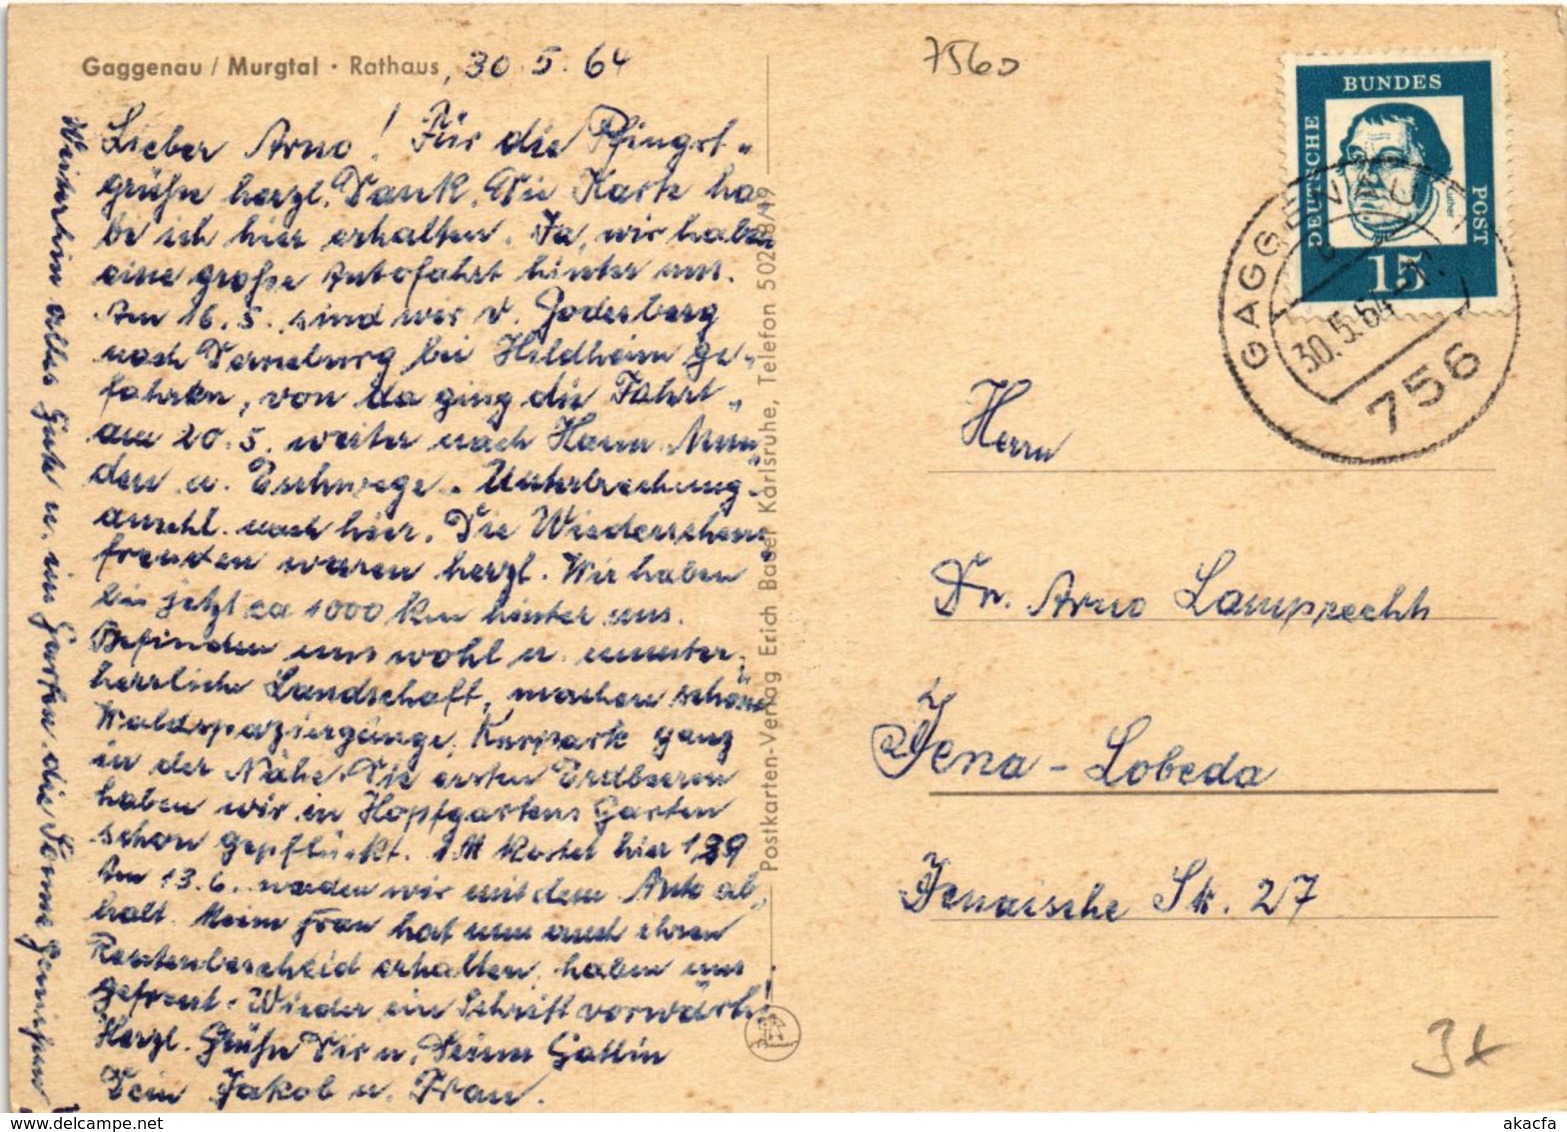 Gaggenau / Murgtal · Rathaus, 30.5.64
Lieber Arno! Für die Pfingst-
grüße herzl. Dank. Die Karte ha-
be ich hier erhalten. Ja, wir haben
eine große Autofahrt hinter uns.
Am 16.5. sind wir v. Godesberg
nach Derneburg bei Hildheim ge-
fahren, von da ging die Fahrt
am 20.5. weiter nach Hann. Mün-
den u. Eschwege - Unterbrechung -
anschl. nach hier. Die Wiedersehens-
freuden waren herzl. Wir haben
bis jetzt ca 1000 km hinter uns.
Befinden uns wohl u. munter,
herrliche Landschaft, machen schöne
Waldspaziergänge, Kurpark ganz
in der Nähe. Die ersten Erdbeeren
haben wir in Hopfgartens Garten
schon gepflückt. 1 M kostet hier 1,39
Am 13.6. werden wir mit dem Auto ab-
halt. Meine Frau hat nun auch ihren
Rentenbescheid erhalten, haben uns
gefreut. Wieder ein Schritt vorwärts!
Herzl. Grüße Dir u. Deiner Gattin
Dein Jakob u. Frau.
Weiterhin alles Gute u. im Garten die Sonne genießen!
Postkarten-Verlag Erich Bauer Karlsruhe, Telefon 5028/49
7560
DEUTSCHE BUNDES POST
Luther
15
GAGGENAU
30.5.64
756
Herrn
Dr. Arno Lamprecht
Jena - Lobeda
Jenaische Str. 27
3x
akacfa
www.delcampe.net